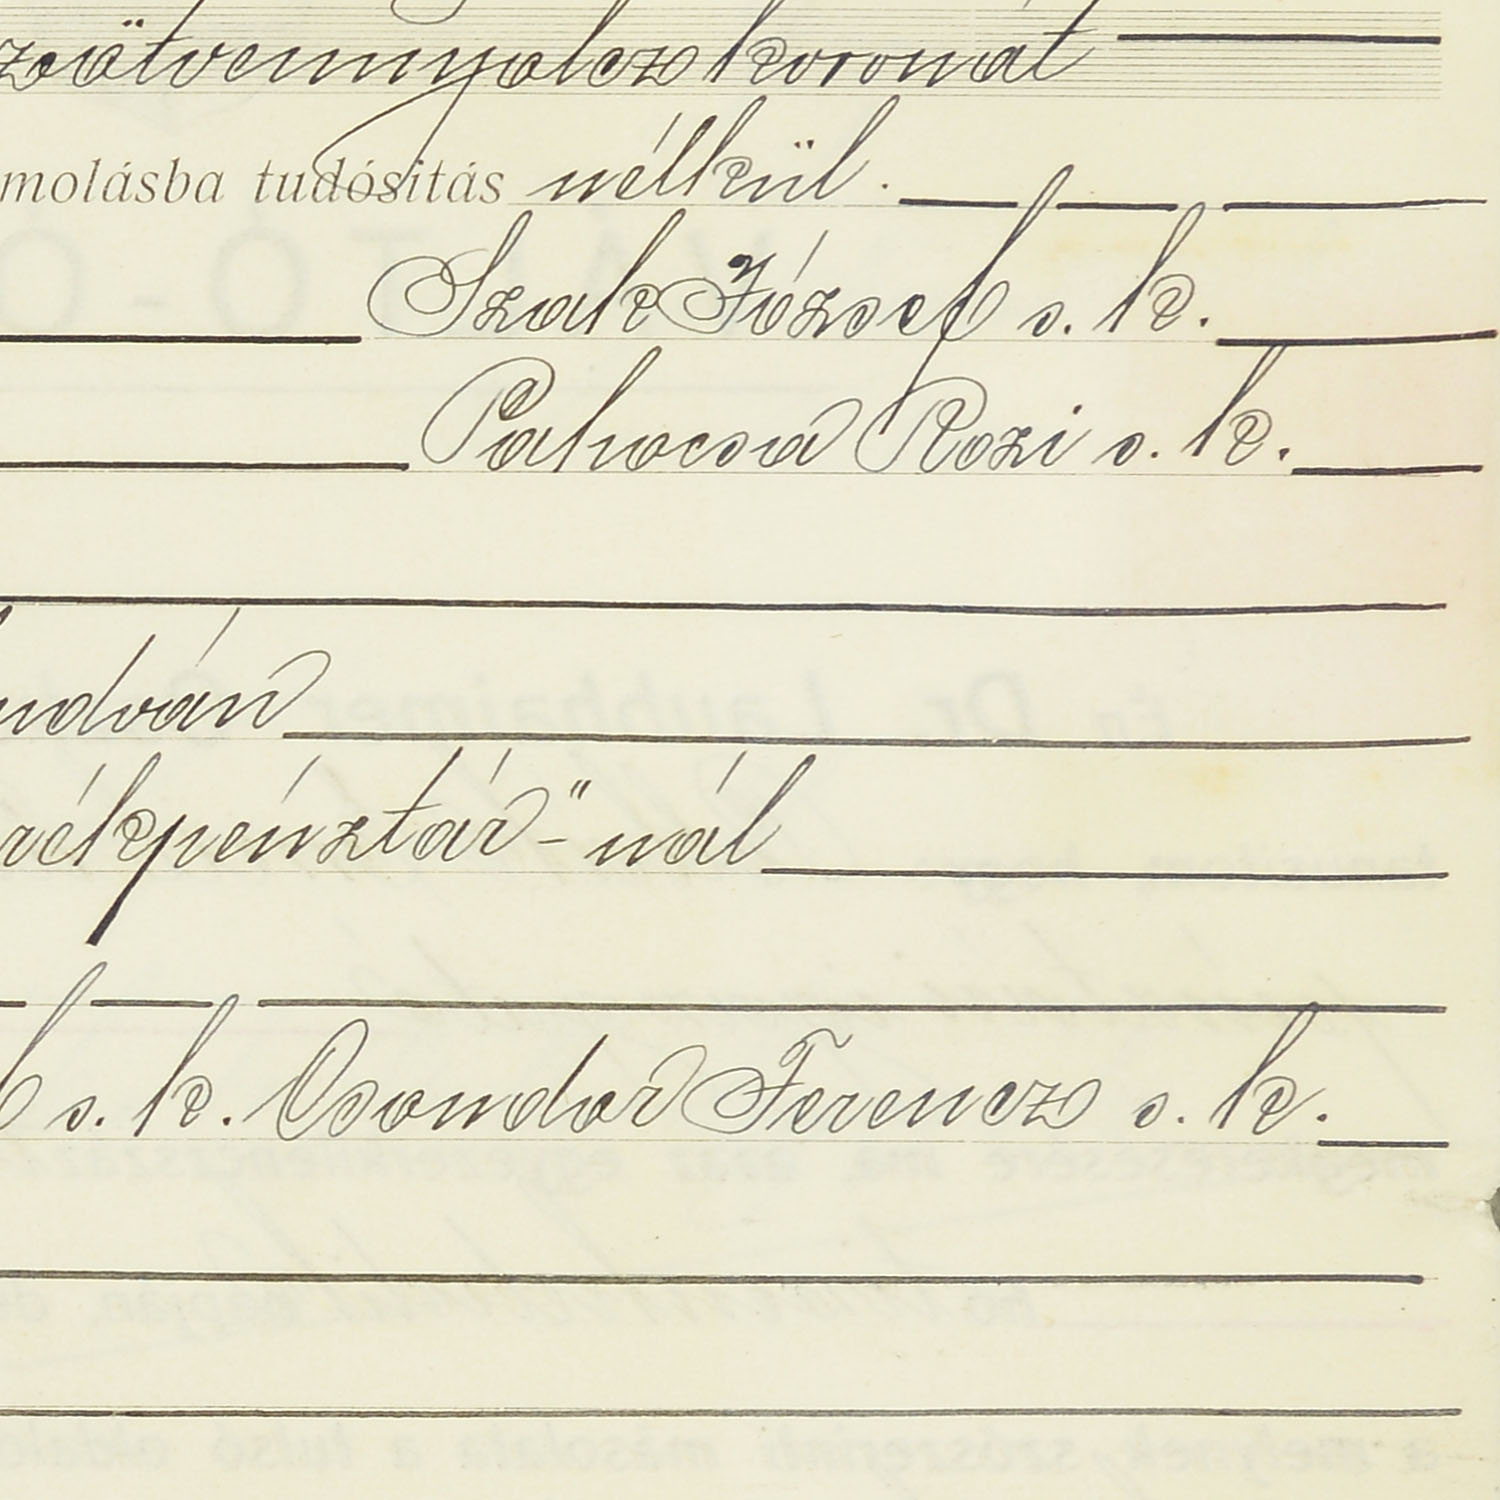 zötvennyolcz koronát
molásba tudósítás nélkül.
Szak József s. k.
Pahocsa Rozi s. k.
udván
rékpénztár"-nál
s. k. Csondor Ferencz s. k.